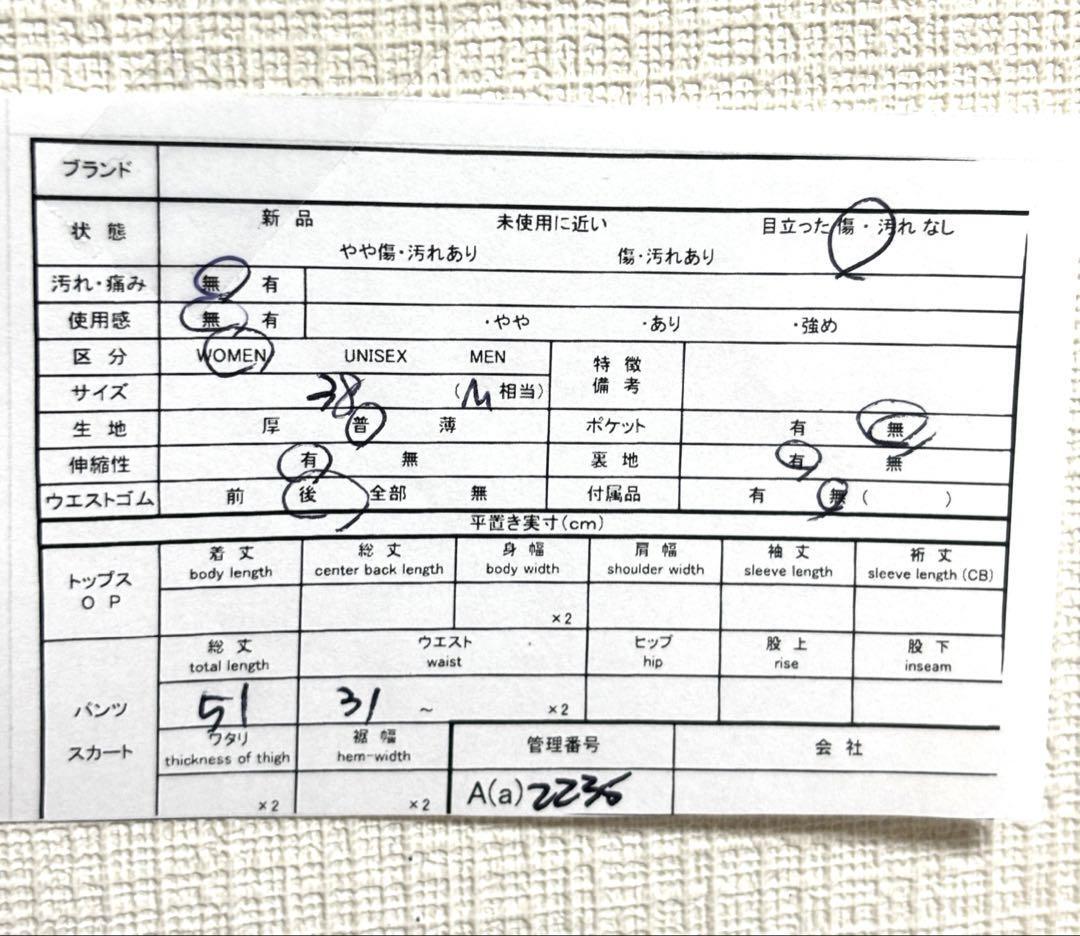 ブランド
状態 新品 未使用に近い 目立った傷・汚れ なし
やや傷・汚れあり 傷・汚れあり
汚れ・痛み 無 有
使用感 無 有 ・やや ・あり ・強め
区分 WOMEN UNISEX MEN 特徴
備考
サイズ 38 (M相当)
生地 厚 普 薄 ポケット 有 無
伸縮性 有 無 裏地 有 無
ウエストゴム 前 後 全部 無 付属品 有 無 ( )
平置き実寸(cm)
トップス
OP
着丈 総丈 身幅 肩幅 袖丈 裄丈
body length center back length body width shoulder width sleeve length sleeve length (CB)
×2
総丈 ウエスト ヒップ 股上 股下
total length waist hip rise inseam
パンツ 51 31 ~ ×2
スカート
ワタリ 裾幅 管理番号 会社
thickness of thigh hem-width
×2 ×2 A(a)2236